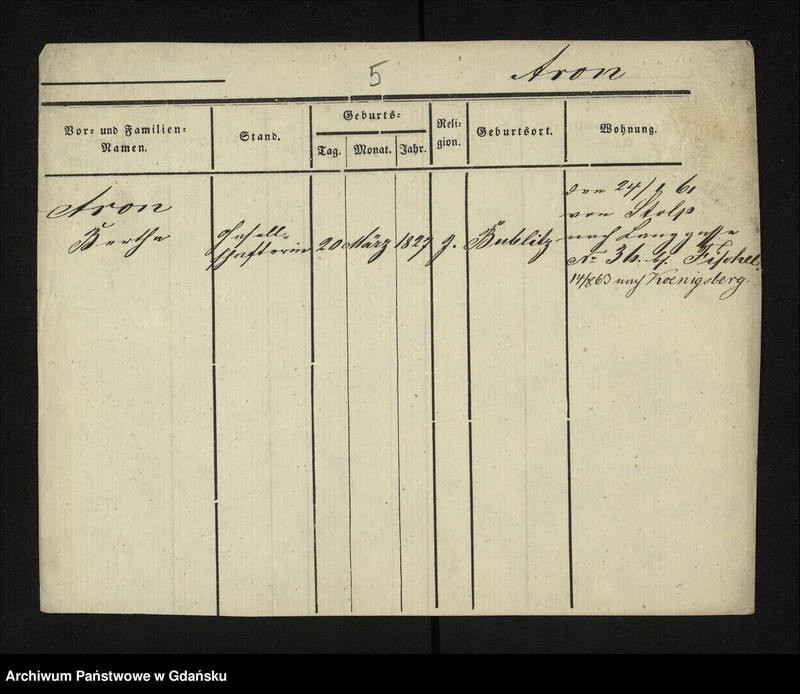 5
Aron
Vor- und Familien-
Namen.
Stand.
Geburts-
Tag.
Monat.
Jahr.
Reli-
gion.
Geburtsort.
Wohnung.
Aron
Berthe
Gesell-
schafterin
20
März
1827
j.
Bublitz
von Stolp
nach Langgasse
No
bei Fischel.
14/8 63 nach Koenigsberg.
Archiwum Państwowe w Gdańsku